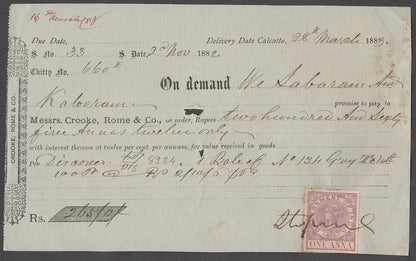 16th March/83
Due Date, Delivery Date Calcutta, 28th March 1883.
S. No. 33 S. Date, 20 Nov 1882.
Chitty No. 660
On demand We Sabaram And
Kalooram promise to pay to
Messrs. Crooke, Rome & Co., or order, Rupees two hundred And Sixty
five Annas twelve only
with interest thereon at twelve per cent. per annum, for value received in goods
Per Discoverer 8324. 1 Bale of No 134 Grey
Rs. 265/12/
CROOKE, ROME & CO
ONE ANNA